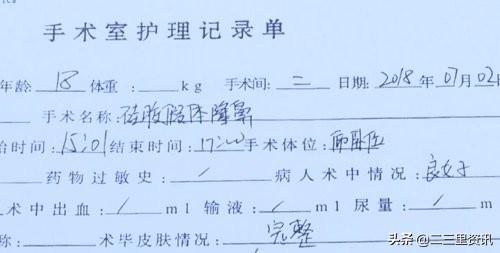 手术室护理记录单
年龄 18 体重:____kg 手术间:二 日期:2018年07月02
手术名称:硅胶假体隆鼻
始时间:15:01结束时间:17:00手术体位:仰卧位
药物过敏史:/ 病人术中情况:良好
术中出血:/ ml输液:/ ml尿量:/ m
称: 术毕皮肤情况:完整
头条 @二三里资讯